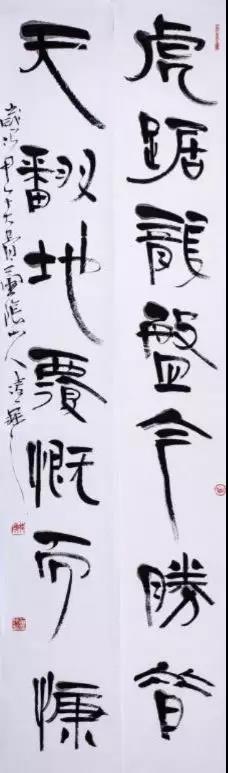 虎踞龍盤今勝昔
天翻地覆慨而慷
歲次甲午山人